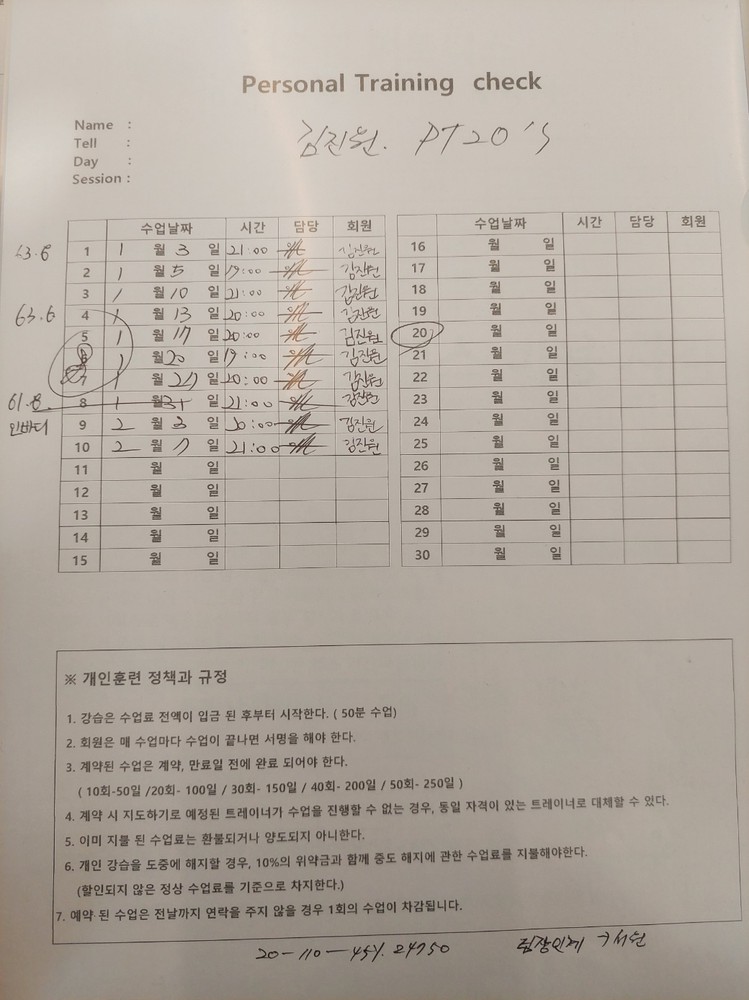 Personal Training check
Name :
Tell :
Day :
Session :
김진원. PT 20'S
수업날짜 시간 담당 회원
63.6
1 1 월 3 일 21:00 김진원
2 1 월 5 일 19:00 김진원
3 1 월 10 일 21:00 김진원
63.6
4 1 월 13 일 20:00 김진원
5 1 월 17 일 20:00 김진원
6 1 월 20 일 19:00 김진원
7 1 월 27 일 20:00 김진원
61.8
8 1 월 31 일 21:00 김진원
인바디
9 2 월 3 일 20:00 김진원
10 2 월 7 일 21:00 김진원
11 월 일
12 월 일
13 월 일
14 월 일
15 월 일
수업날짜 시간 담당 회원
16 월 일
17 월 일
18 월 일
19 월 일
20 월 일
21 월 일
22 월 일
23 월 일
24 월 일
25 월 일
26 월 일
27 월 일
28 월 일
29 월 일
30 월 일
※ 개인훈련 정책과 규정
1. 강습은 수업료 전액이 입금 된 후부터 시작한다. ( 50분 수업)
2. 회원은 매 수업마다 수업이 끝나면 서명을 해야 한다.
3. 계약된 수업은 계약, 만료일 전에 완료 되어야 한다.
( 10회-50일 /20회- 100일 / 30회- 150일 / 40회- 200일 / 50회- 250일 )
4. 계약 시 지도하기로 예정된 트레이너가 수업을 진행할 수 없는 경우, 동일 자격이 있는 트레이너로 대체할 수 있다.
5. 이미 지불 된 수업료는 환불되거나 양도되지 아니한다.
6. 개인 강습을 도중에 해지할 경우, 10%의 위약금과 함께 중도 해지에 관한 수업료를 지불해야한다.
(할인되지 않은 정상 수업료를 기준으로 차지한다.)
7. 예약 된 수업은 전날까지 연락을 주지 않을 경우 1회의 수업이 차감됩니다.
20-110-45%. 24750